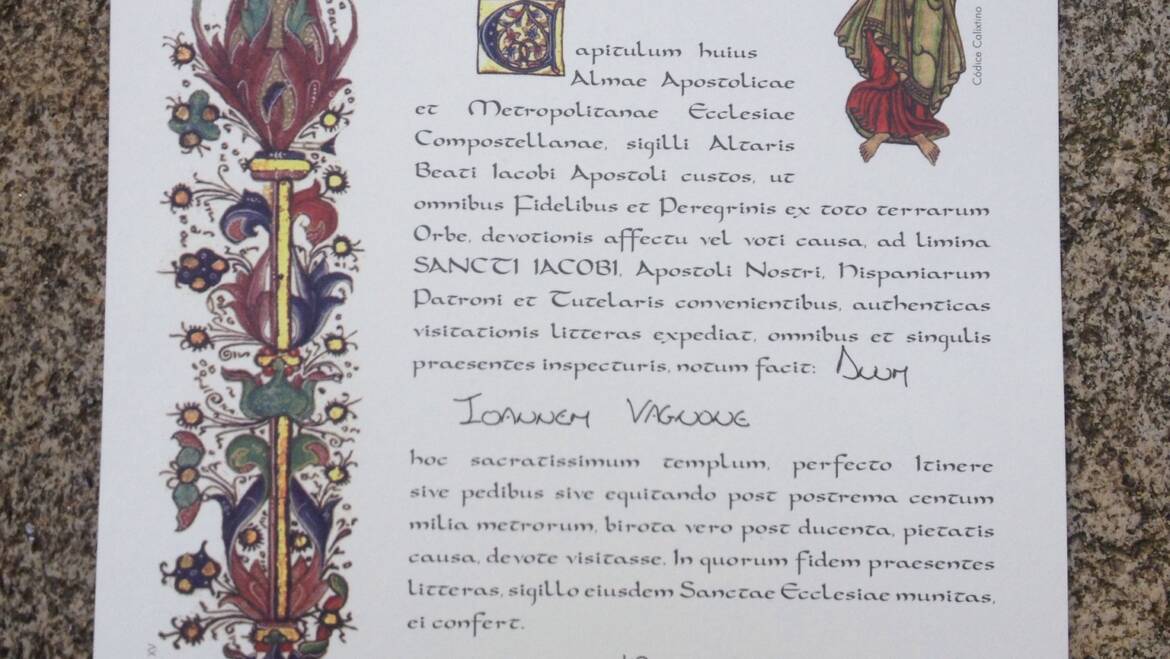 Capitulum huius
Almae Apostolicae
et Metropolitanae Ecclesiae
Compostellanae, sigilli Altaris
Beati Iacobi Apostoli custos, ut
omnibus Fidelibus et Peregrinis ex toto terrarum
Orbe, devotionis affectu vel voti causa, ad limina
SANCTI IACOBI, Apostoli Nostri, Hispaniarum
Patroni et Tutelaris convenientibus, authenticas
visitationis litteras expediat, omnibus et singulis
praesentes inspecturis, notum facit: Dnum
Ioannem Vagnone
hoc sacratissimum templum, perfecto Itinere
sive pedibus sive equitando post postrema centum
milia metrorum, birota vero post ducenta, pietatis
causa, devote visitasse. In quorum fidem praesentes
litteras, sigillo eiusdem Sanctae Ecclesiae munitas,
ei confert.
Códice Calixtino
XV